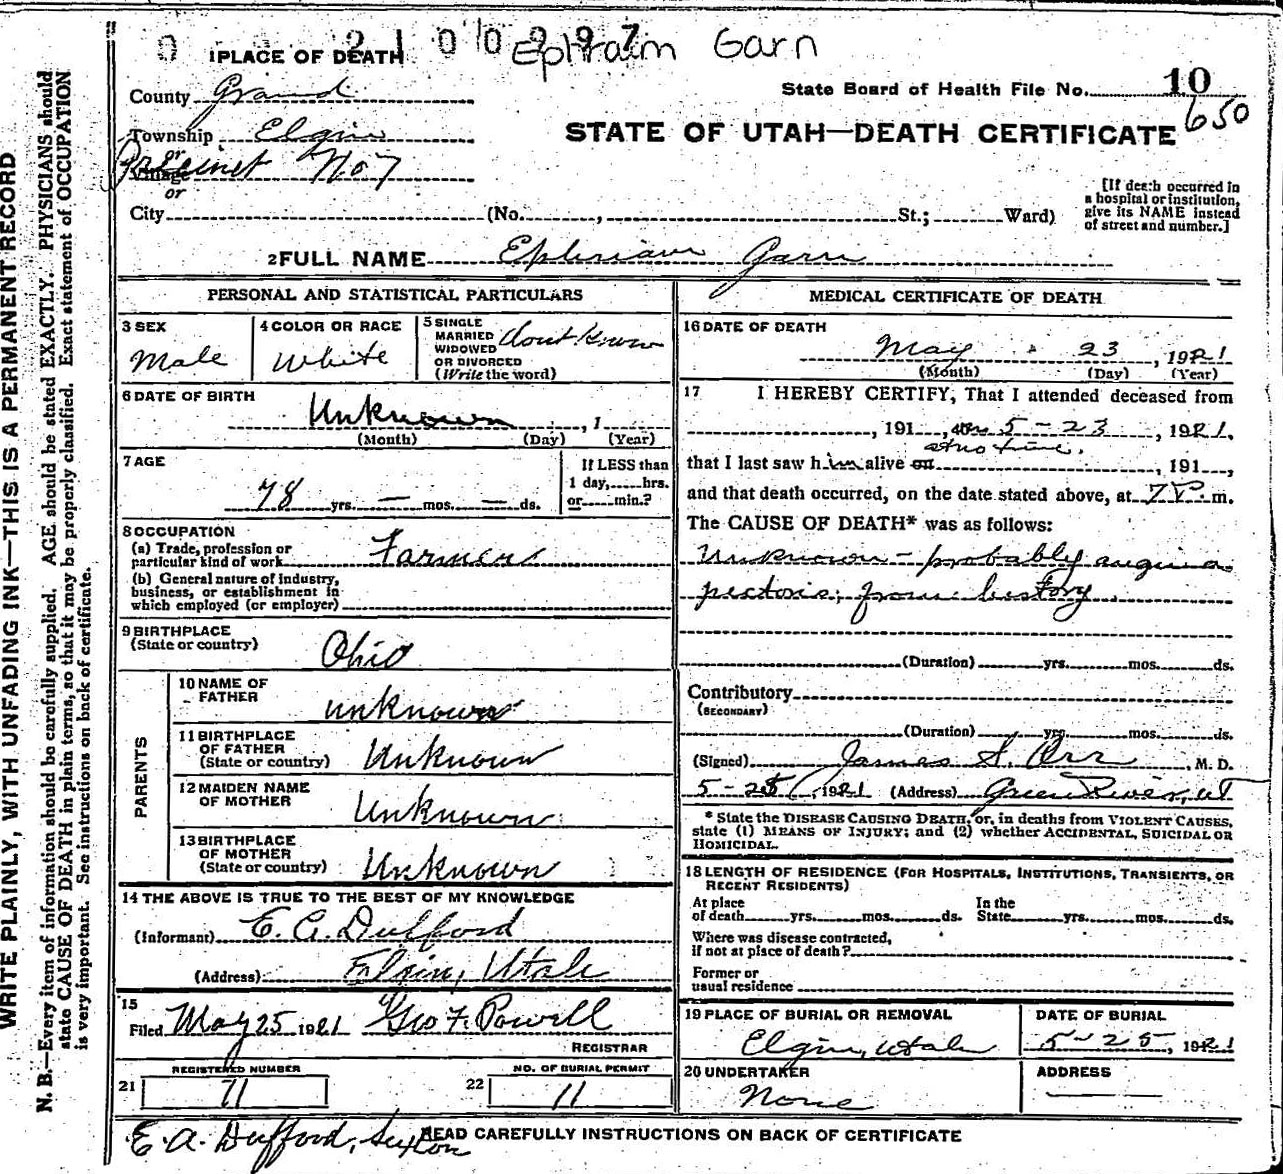 0 2100297 Ephraim Garn
1 PLACE OF DEATH
County Grand
State Board of Health File No. 10
650
Township Elgin
STATE OF UTAH—DEATH CERTIFICATE
or
Village Precinct No 7
or
City (No. , St.; Ward)
[If death occurred in
a hospital or institution,
give its NAME instead
of street and number.]
2 FULL NAME Ephriam Garn
PERSONAL AND STATISTICAL PARTICULARS
3 SEX
Male
4 COLOR OR RACE
White
5 SINGLE
MARRIED
WIDOWED
OR DIVORCED
(Write the word)
dont know
6 DATE OF BIRTH
Unknown , 1
(Month) (Day) (Year)
7 AGE
78 yrs. — mos. — ds.
If LESS than
1 day, hrs.
or min.?
8 OCCUPATION
(a) Trade, profession or
particular kind of work Farmer
(b) General nature of industry,
business, or establishment in
which employed (or employer)
9 BIRTHPLACE
(State or country) Ohio
PARENTS
10 NAME OF
FATHER unknown
11 BIRTHPLACE
OF FATHER
(State or country) Unknown
12 MAIDEN NAME
OF MOTHER Unknown
13 BIRTHPLACE
OF MOTHER
(State or country) Unknown
14 THE ABOVE IS TRUE TO THE BEST OF MY KNOWLEDGE
(Informant) E. A. Dufford
(Address) Elgin, Utah
15
Filed May 25 1921 Geo F. Powell
REGISTRAR
REGISTERED NUMBER
21 71
NO. OF BURIAL PERMIT
22 11
MEDICAL CERTIFICATE OF DEATH
16 DATE OF DEATH
May 23, 1921
(Month) (Day) (Year)
17 I HEREBY CERTIFY, That I attended deceased from
, 191 , 5-23, 1921,
at no time.
that I last saw him alive on , 191 ,
and that death occurred, on the date stated above, at 7 P. m.
The CAUSE OF DEATH* was as follows:
Unknown - probably angina
pectoris, from history.
(Duration) yrs. mos. ds.
Contributory
(SECONDARY)
(Duration) yrs. mos. ds.
(Signed) James S. Orr, M. D.
5-25, 1921 (Address) Green River, Ut
* State the DISEASE CAUSING DEATH, or, in deaths from VIOLENT CAUSES,
state (1) MEANS OF INJURY; and (2) whether ACCIDENTAL, SUICIDAL OR
HOMICIDAL.
18 LENGTH OF RESIDENCE (FOR HOSPITALS, INSTITUTIONS, TRANSIENTS, OR
RECENT RESIDENTS)
At place In the
of death yrs. mos. ds. State yrs. mos. ds.
Where was disease contracted,
if not at place of death?
Former or
usual residence
19 PLACE OF BURIAL OR REMOVAL
Elgin, Utah
DATE OF BURIAL
5-25, 1921
20 UNDERTAKER
None
ADDRESS
—
E. A. Dufford, Sexton
READ CAREFULLY INSTRUCTIONS ON BACK OF CERTIFICATE
WRITE PLAINLY, WITH UNFADING INK—THIS IS A PERMANENT RECORD
N. B.—Every item of information should be carefully supplied. AGE should be stated EXACTLY. PHYSICIANS should
state CAUSE OF DEATH in plain terms, so that it may be properly classified. Exact statement of OCCUPATION
is very important. See instructions on back of certificate.